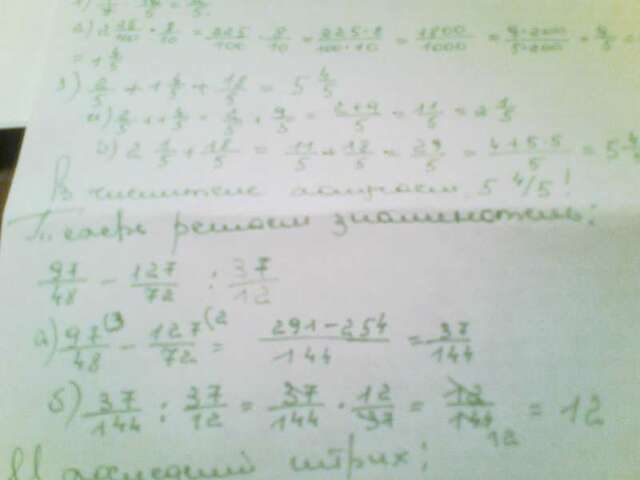 2) 2 25/100 · 8/10 = 225/100 · 8/10 = 225·8/100·10 = 1800/1000 = 9·200/5·200 = 9/5 =
= 1 4/5
3) 2/5 + 1 4/5 + 18/5 = 5 4/5
а) 2/5 + 1 4/5 = 2/5 + 9/5 = 2+9/5 = 11/5 = 2 1/5
б) 2 1/5 + 18/5 = 11/5 + 18/5 = 29/5 = 4+5·5/5 = 5 4/5
В числителе получаем 5 4/5!
Теперь решаем знаменатель:
97/48 - 127/72 : 37/12
а) 97(3/48 - 127(2/72 = 291-254/144 = 37/144
б) 37/144 : 37/12 = 37/144 · 12/37 = 12/144 12 = 12
И последний штрих: